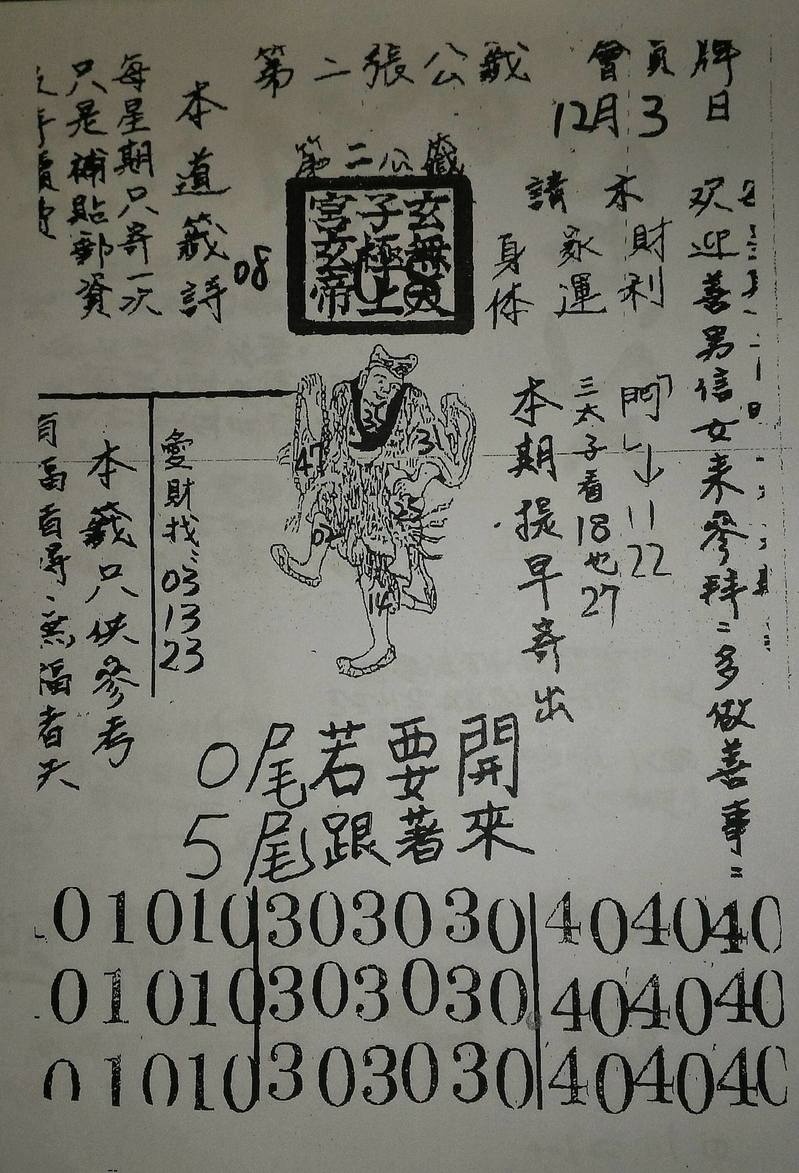 第二張公籤
會員牌
12月3日
第二公籤
玄無
子極上
宮玄帝
08
本道籤詩
每星期只寄一次
只是補貼郵資
請
身体
家運
財利
欢迎善男信女来參拜：多做善事：
「門」↓11 22
三太子看18也27
本期提早寄出
47
3
25
02
14
愛財找：03 13 23
本籤只供參考
0尾若要開
5尾跟著來
01010 303030 404040
01010 303030 404040
01010 303030 404040